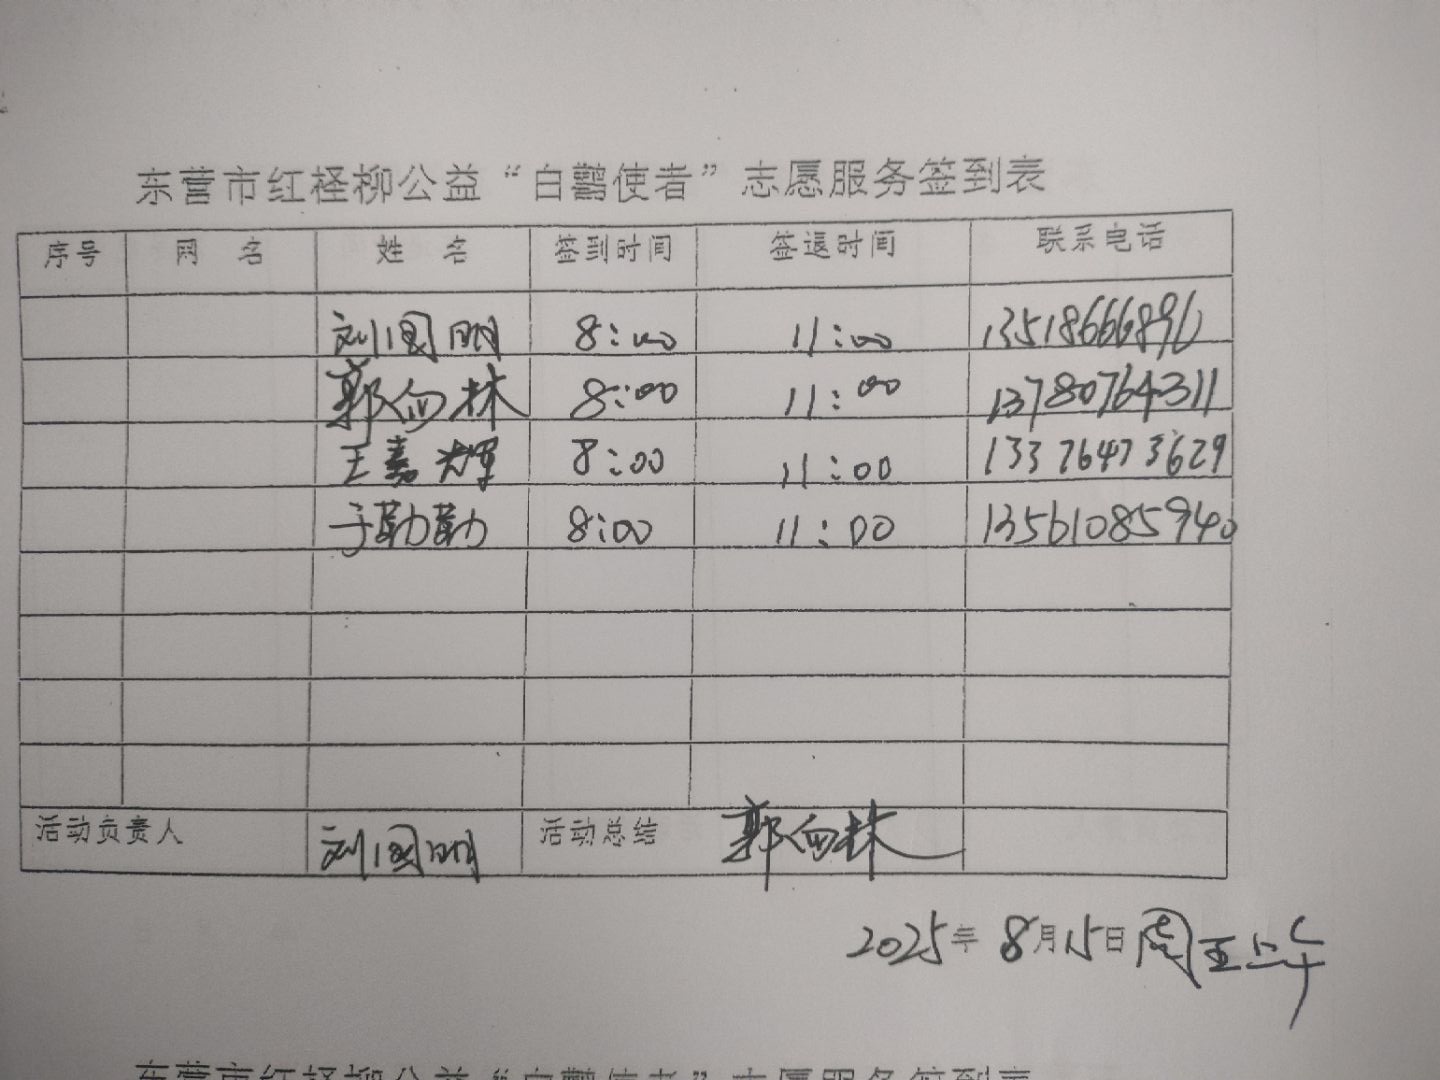 东营市红柽柳公益“白鹳使者”志愿服务签到表
序号 网 名 姓 名 签到时间 签退时间 联系电话
刘国明 8:00 11:00 13518666896
郭向林 8:00 11:00 13780764311
王嘉辉 8:00 11:00 13376473629
于勤勤 8:00 11:00 13561085940
活动负责人 刘国明 活动总结 郭向林
2025年 8月15日 周五上午
东营市红柽柳公益“白鹳使者”志愿服务签到表